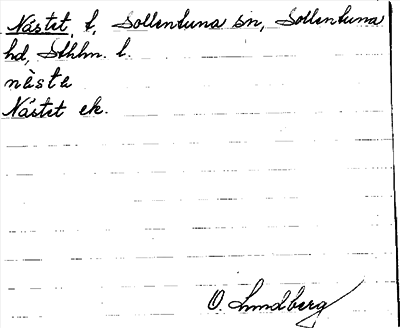 Nästet, t, Sollentuna sn, Sollentuna
hd, Sthlm. l.
nàsta
Nästet ek.
O. Lundberg